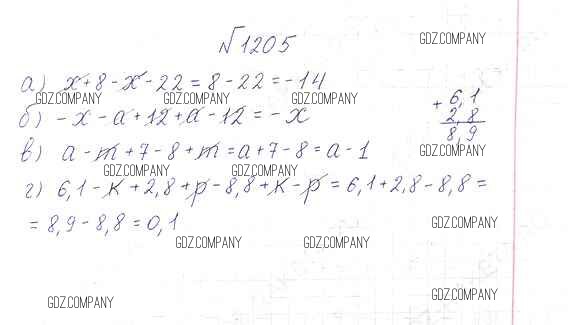 №1205
GDZ.COMPANY
а) x + 8 - x - 22 = 8 - 22 = -14
GDZ.COMPANY GDZ.COMPANY GDZ.COMPANY
б) -x - a + 12 + a - 12 = -x
+ 6,1
2,8
8,9
GDZ.COMPANY
в) a - m + 7 - 8 + m = a + 7 - 8 = a - 1
GDZ.COMPANY GDZ.COMPANY
г) 6,1 - k + 2,8 + p - 8,8 + k - p = 6,1 + 2,8 - 8,8 =
= 8,9 - 8,8 = 0,1
GDZ.COMPANY
GDZ.COMPANY GDZ.COMPANY
GDZ.COMPANY GDZ.COMPANY